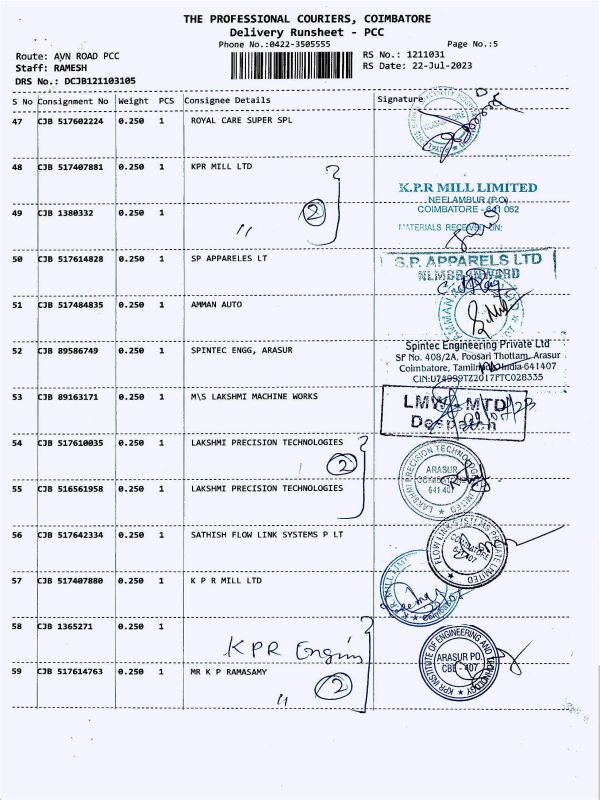 THE PROFESSIONAL COURIERS, COIMBATORE
Delivery Runsheet - PCC
Phone No.:0422-3505555
Page No.:5
Route: AVN ROAD PCC
RS No.: 1211031
Staff: RAMESH
RS Date: 22-Jul-2023
DRS No.: DCJB121103105
S No Consignment No Weight PCS Consignee Details Signature
47 CJB 517602224 0.250 1 ROYAL CARE SUPER SPL
48 CJB 517407881 0.250 1 KPR MILL LTD
K.P.R MILL LIMITED
NEELAMBUR (P.O)
COIMBATORE - 641 062
49 CJB 1380332 0.250 1
2
"
MATERIALS RECEIVED ON:
50 CJB 517614828 0.250 1 SP APPARELES LT
S.P. APPARELS LTD
NLMBR INWARD
51 CJB 517484835 0.250 1 AMMAN AUTO
52 CJB 89586749 0.250 1 SPINTEC ENGG, ARASUR
Spintec Engineering Private Ltd
SF No. 408/2A, Poosari Thottam, Arasur
Coimbatore, Tamilnadu India-641407
CIN:U74999TZ2017PTC028335
53 CJB 89163171 0.250 1 M\S LAKSHMI MACHINE WORKS
LMW - MTD
Despatch
54 CJB 517610035 0.250 1 LAKSHMI PRECISION TECHNOLOGIES
2
LAKSHMI PRECISION TECHNOLOGIES LIMITED
ARASUR
COIMBATORE
641 407
55 CJB 516561958 0.250 1 LAKSHMI PRECISION TECHNOLOGIES
56 CJB 517642334 0.250 1 SATHISH FLOW LINK SYSTEMS P LT
FLOW LINK SYSTEMS PRIVATE LIMITED
COIMBATORE
641 407
57 CJB 517407880 0.250 1 K P R MILL LTD
58 CJB 1365271 0.250 1
KPR Engin
KPR INSTITUTE OF ENGINEERING AND TECHNOLOGY
ARASUR PO.
CBE - 407
59 CJB 517614763 0.250 1 MR K P RAMASAMY
2
"